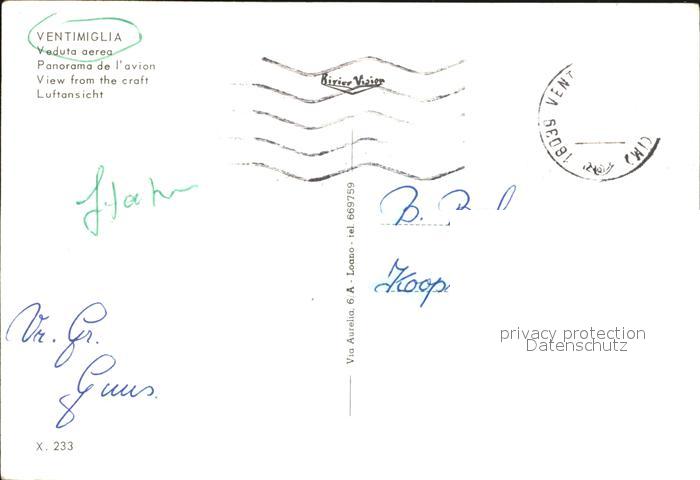 VENTIMIGLIA
Veduta aerea
Panorama de l'avion
View from the craft
Luftansicht
18039 VENT
(IM)
Via Aurelia, 6/A - Loano - tel. 669759
B.
Koop
Vr. Gr.
Guus.
privacy protection
Datenschutz
X. 233